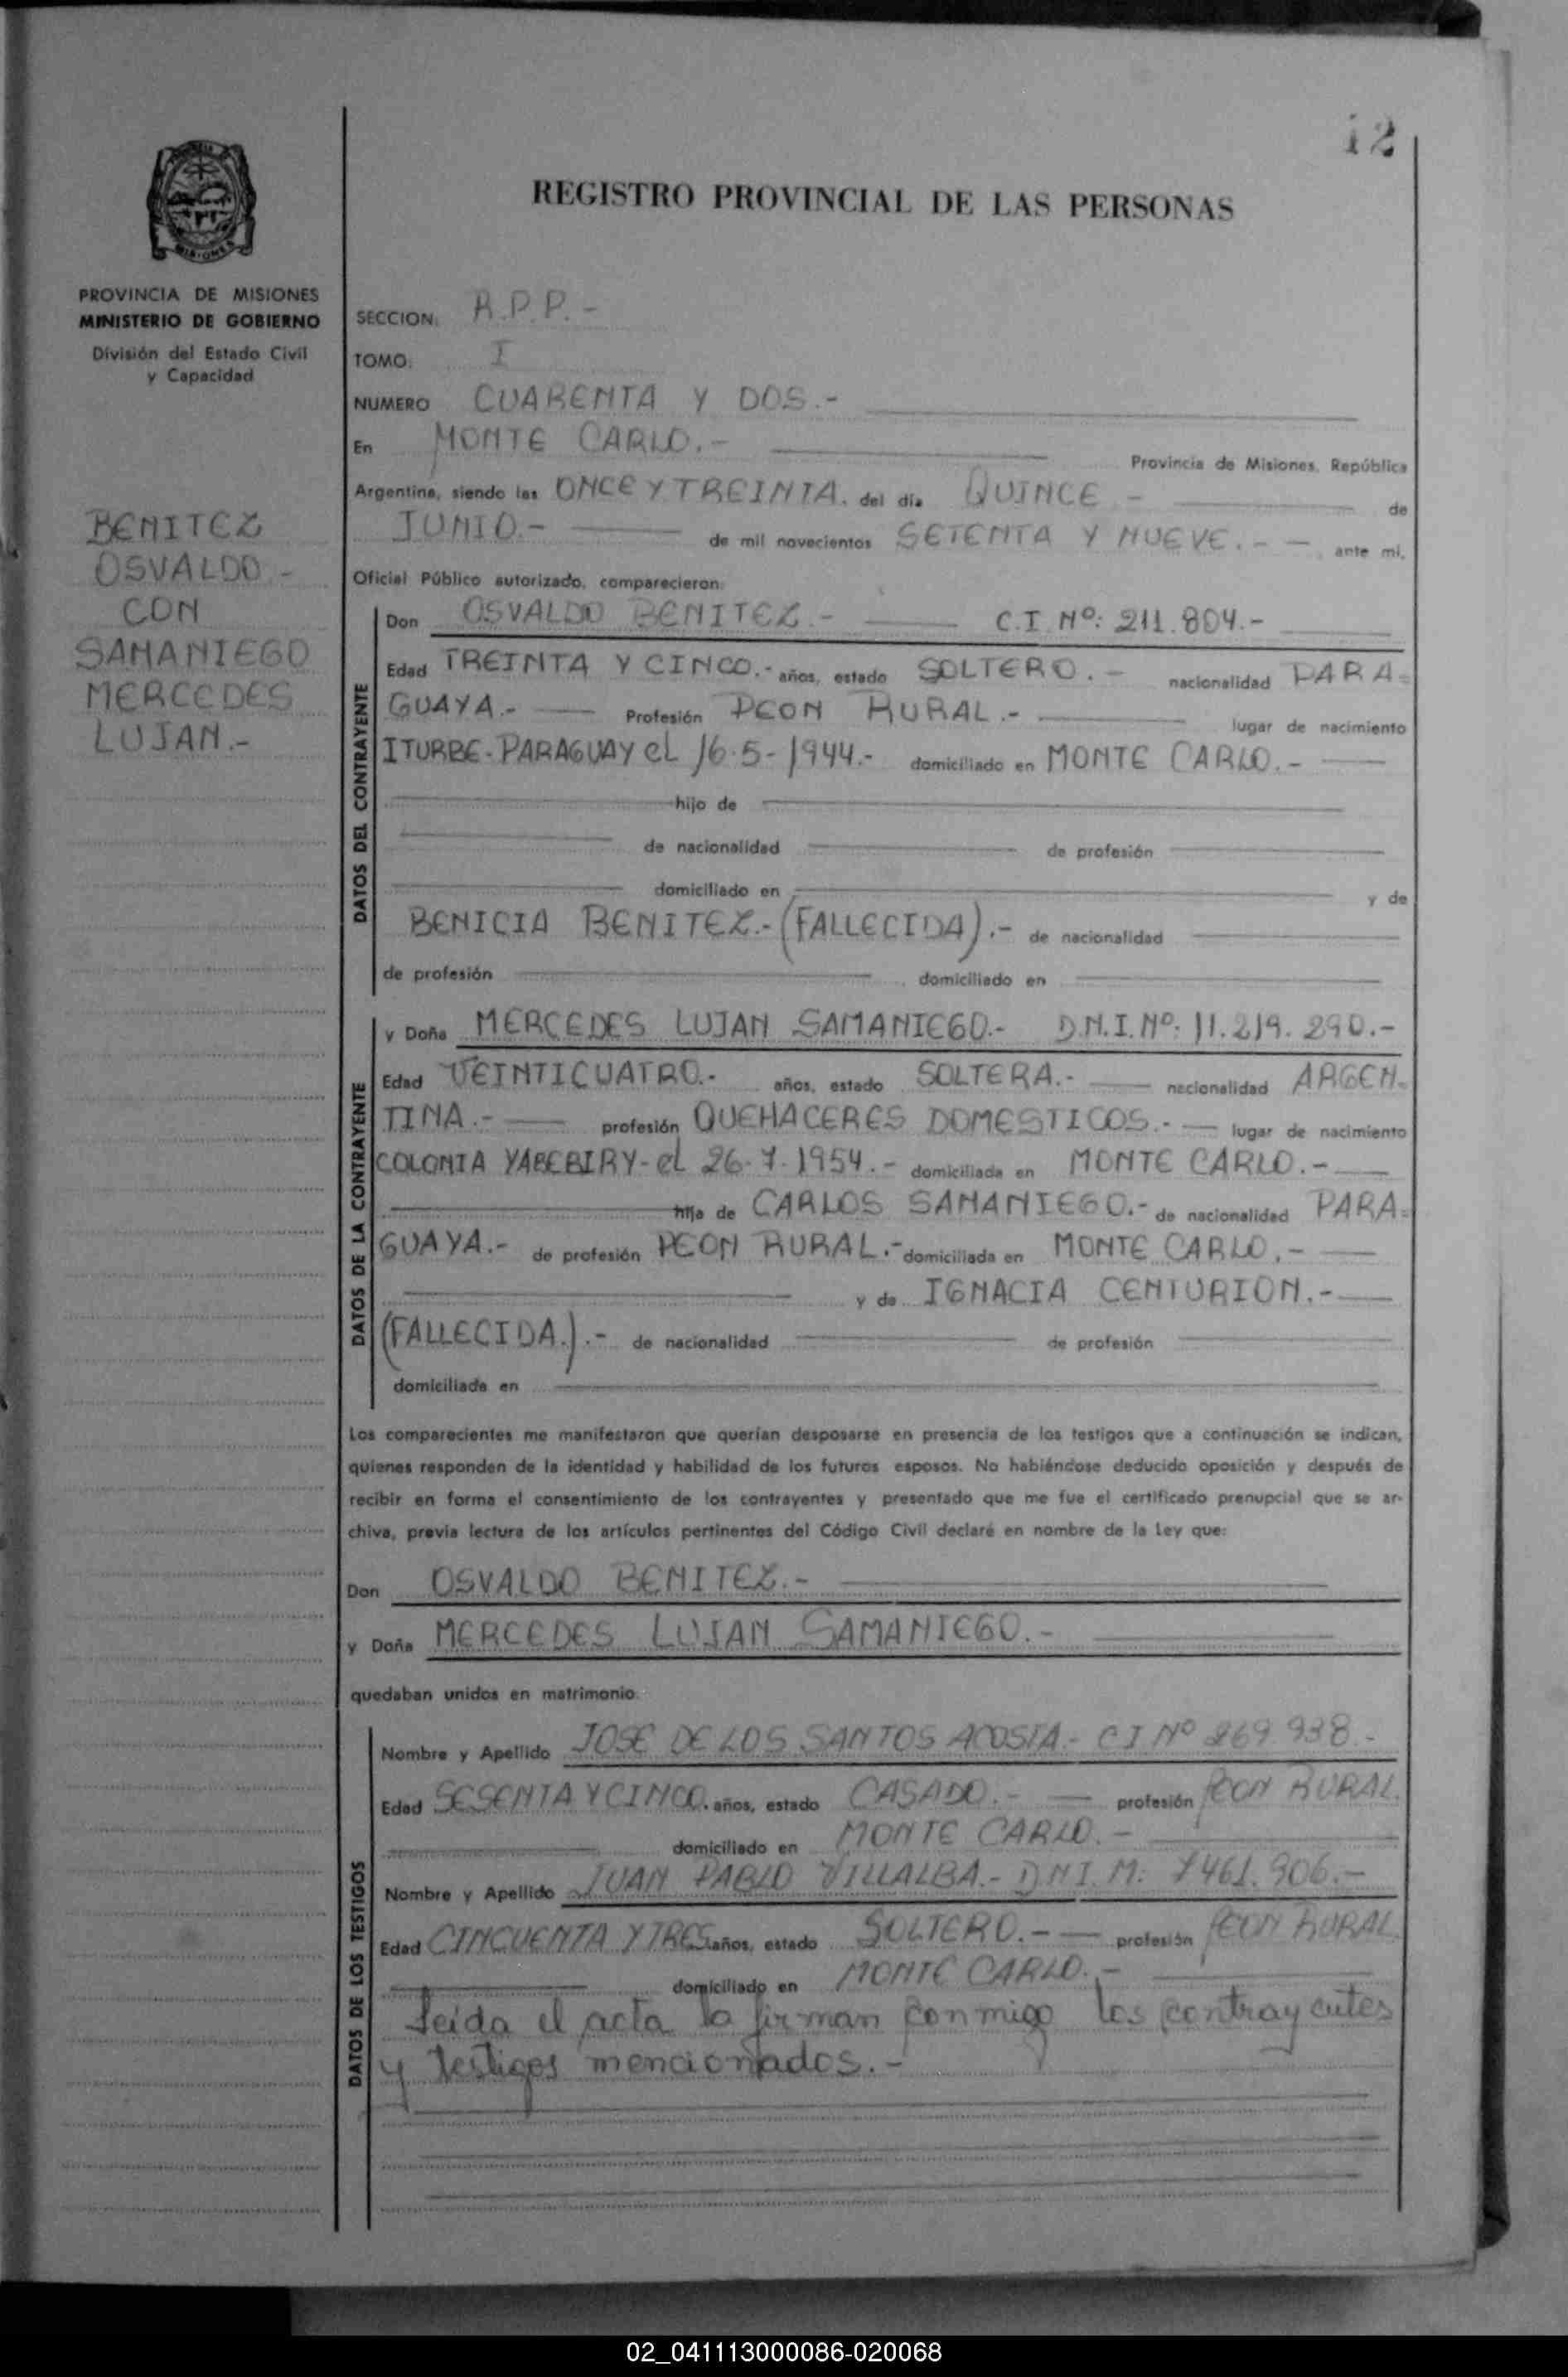 12
REGISTRO PROVINCIAL DE LAS PERSONAS
MISIONES
PROVINCIA DE MISIONES
MINISTERIO DE GOBIERNO
División del Estado Civil
y Capacidad
BENITEZ
OSVALDO -
CON
SAMANIEGO
MERCEDES
LUJAN.-
SECCION: A.P.P.-
TOMO: I
NUMERO CUARENTA Y DOS.-
En MONTE CARLO.- Provincia de Misiones, República
Argentina, siendo las ONCE Y TREINTA. del día QUINCE - de
JUNIO.- de mil novecientos SETENTA Y NUEVE.- - ante mi,
Oficial Público autorizado, comparecieron:
DATOS DEL CONTRAYENTE
Don OSVALDO BENITEZ.- C.I. Nº: 211.804.-
Edad TREINTA Y CINCO.- años, estado SOLTERO.- nacionalidad PARA-
GUAYA.- Profesión PEON RURAL.- lugar de nacimiento
ITURBE-PARAGUAY el 16-5-1944.- domiciliado en MONTE CARLO.-
hijo de
de nacionalidad de profesión
domiciliado en y de
BENICIA BENITEZ.-(FALLECIDA).- de nacionalidad
de profesión domiciliado en
DATOS DE LA CONTRAYENTE
y Doña MERCEDES LUJAN SAMANIEGO.- D.N.I.Nº: 11.219.290.-
Edad VEINTICUATRO.- años, estado SOLTERA.- nacionalidad ARGEN-
TINA.- profesión QUEHACERES DOMESTICOS.- lugar de nacimiento
COLONIA YABEBIRY-el 26-7-1954.- domiciliada en MONTE CARLO.-
hija de CARLOS SAMANIEGO.- de nacionalidad PARA-
GUAYA.- de profesión PEON RURAL.- domiciliada en MONTE CARLO.-
y de IGNACIA CENTURION.-
(FALLECIDA.).- de nacionalidad de profesión
domiciliada en
Los comparecientes me manifestaron que querían desposarse en presencia de los testigos que a continuación se indican,
quienes responden de la identidad y habilidad de los futuros esposos. No habiéndose deducido oposición y después de
recibir en forma el consentimiento de los contrayentes y presentado que me fue el certificado prenupcial que se ar-
chiva, previa lectura de los artículos pertinentes del Código Civil declaré en nombre de la Ley que:
Don OSVALDO BENITEZ.-
y Doña MERCEDES LUJAN SAMANIEGO.-
quedaban unidos en matrimonio.
DATOS DE LOS TESTIGOS
Nombre y Apellido JOSE DE LOS SANTOS ACOSTA.- C I Nº 269.938.-
Edad SESENTA Y CINCO. años, estado CASADO.- profesión PEON RURAL.
domiciliado en MONTE CARLO.-
Nombre y Apellido JUAN PABLO VILLALBA.- D N I. M: 7461.906.-
Edad CINCUENTA Y TRES años, estado SOLTERO.- profesión PEON RURAL
domiciliado en MONTE CARLO.-
Leida el acta la firman conmigo los contrayentes
y testigos mencionados.-
02_041113000086-020068